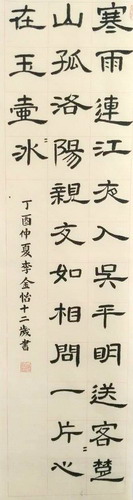 寒雨連江夜入吳平明送客楚
山孤洛陽親友如相問一片心
在玉壺冰
丁酉仲夏李金怡十二歲書